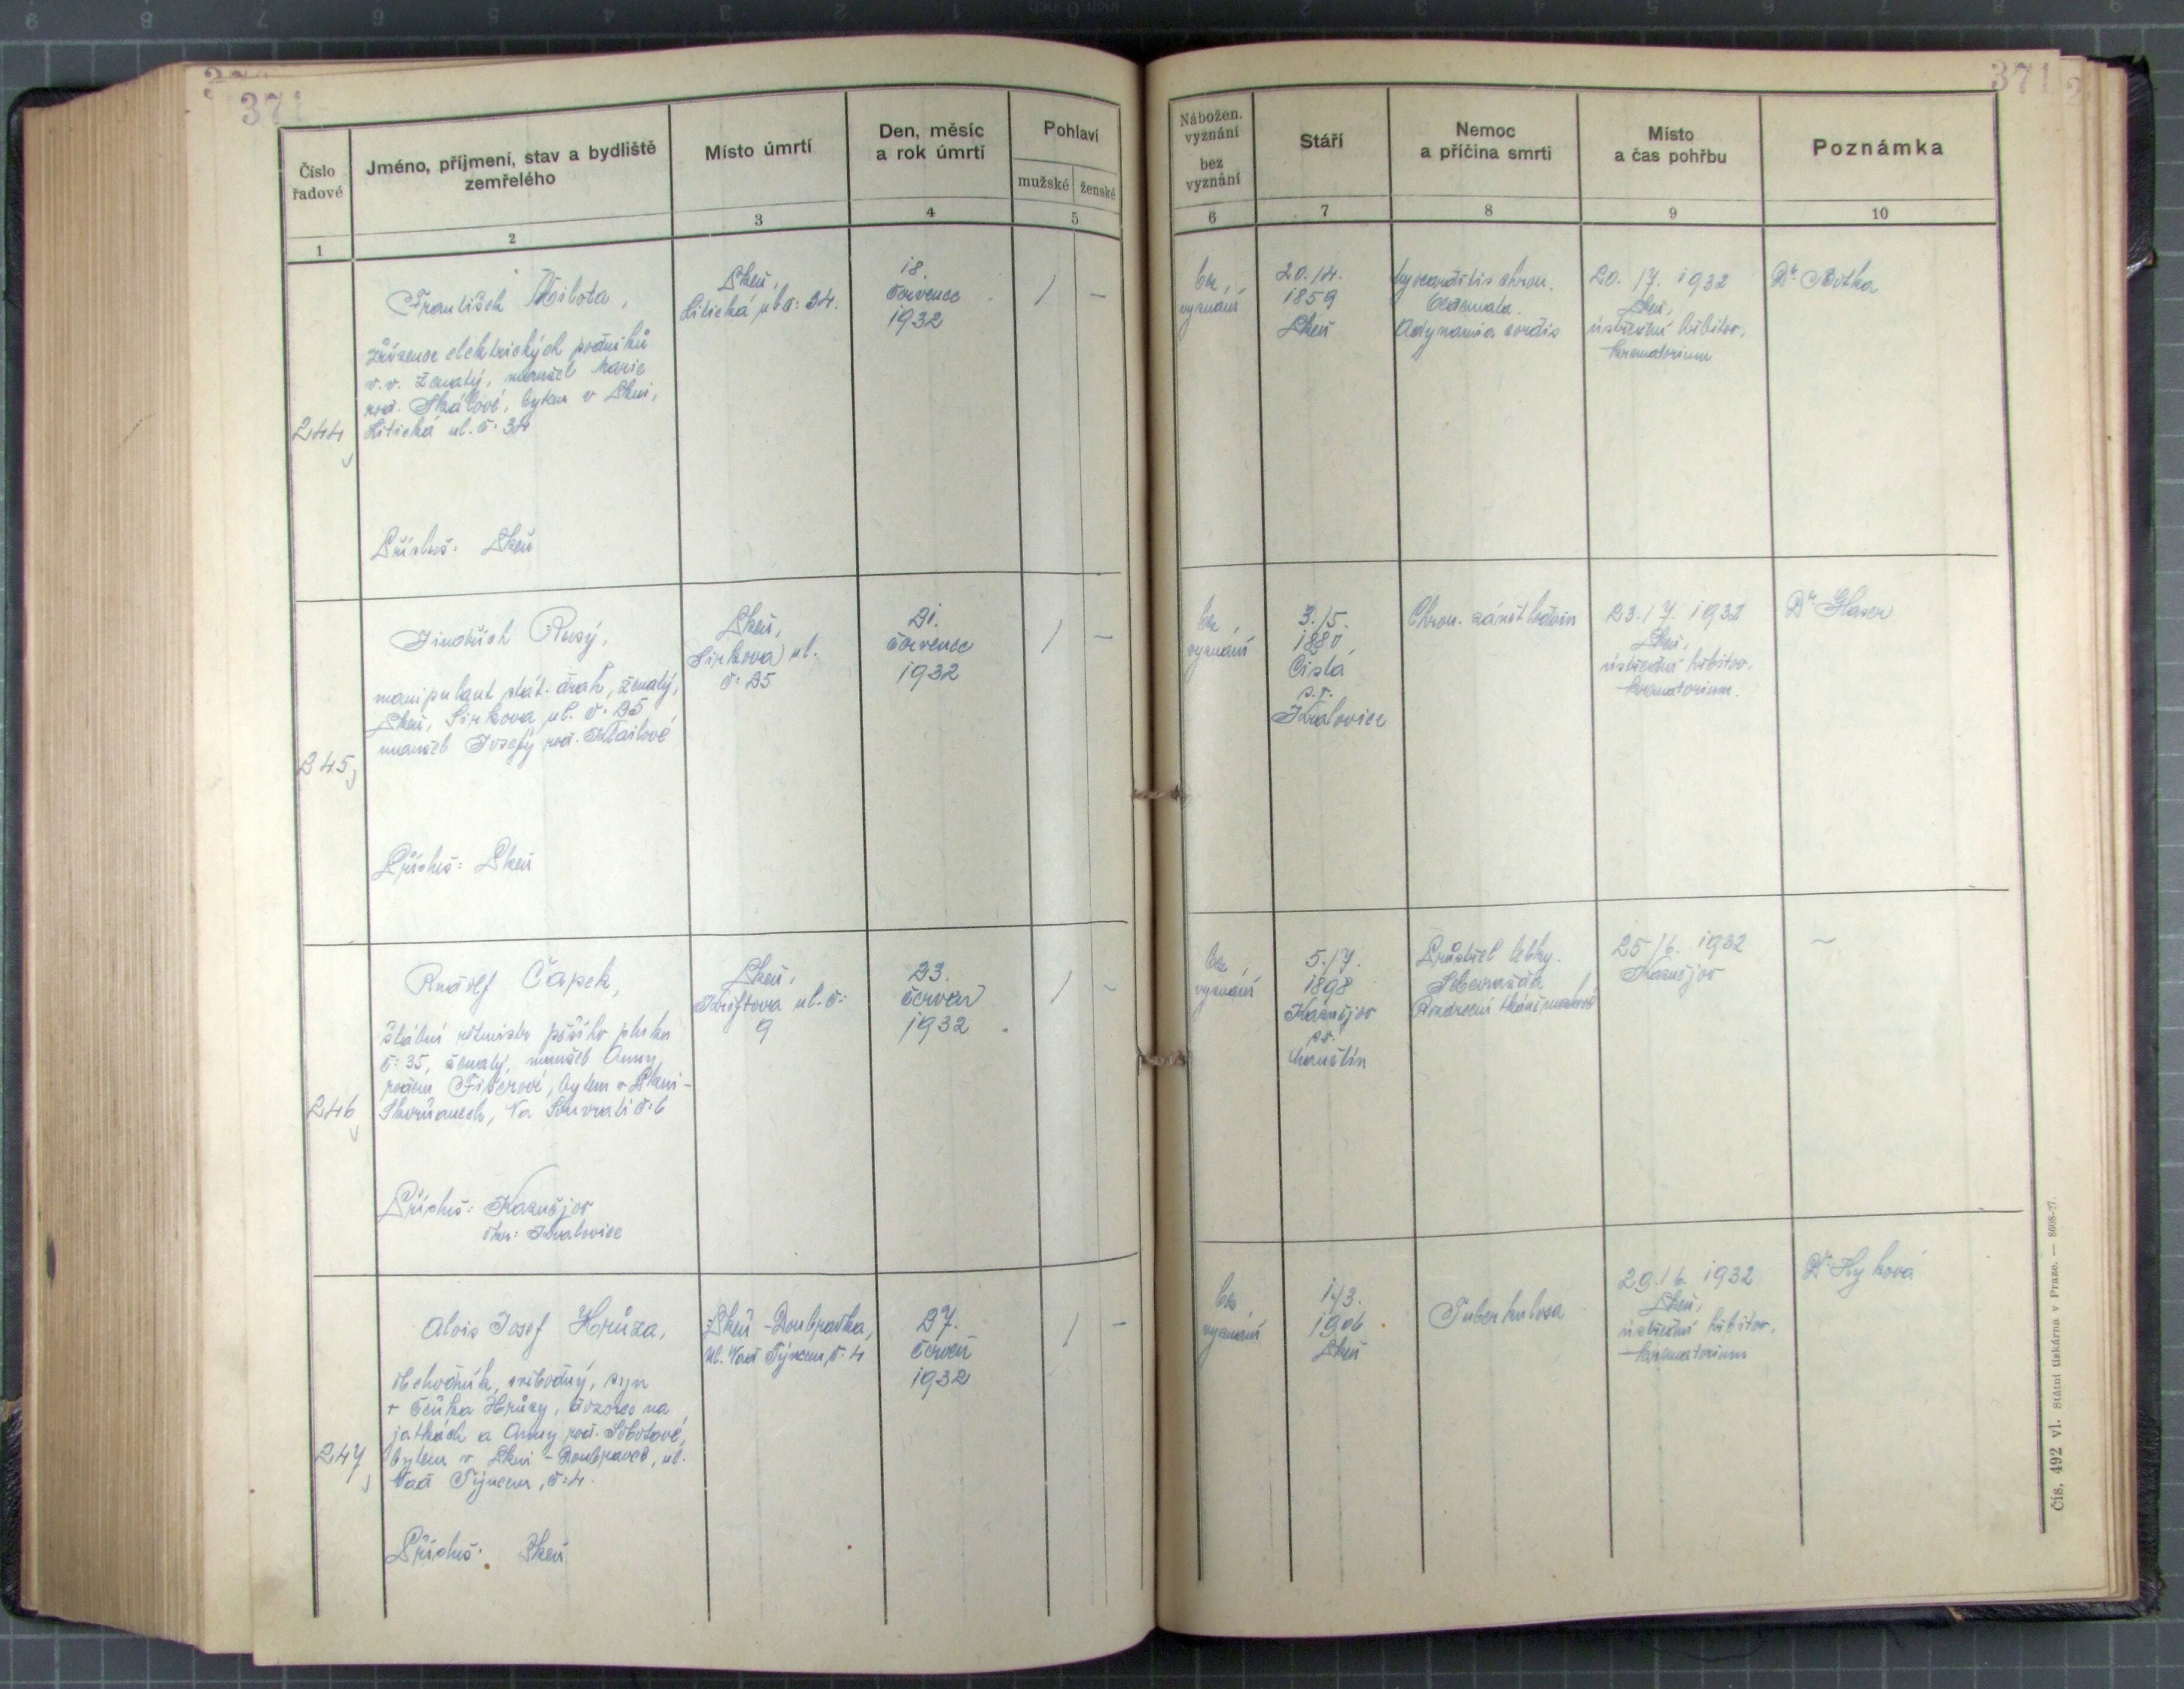 371
371
Číslo
řadové
Jméno, příjmení, stav a bydliště
zemřelého
Místo úmrtí
Den, měsíc
a rok úmrtí
Pohlaví
mužské ženské
1
2
3
4
5
Nábožen.
vyznání
bez
vyznání
Stáří
Nemoc
a příčina smrti
Místo
a čas pohřbu
Poznámka
6
7
8
9
10
244
František
zřízenec elektrických podniků
v. v. ženatý, manžel Marie
roz. Skálové, bytem v Plzni,
Litická ul. č: 34
Přísluš: Plzeň
Plzeň,
Litická ul č: 34.
18.
červenec
1932
/ –
bez
vyznání
20./4.
1859
Plzeň
Myocarditis chron.
Oedemata.
Adynamia cordis
20. /7. 1932
Plzeň,
ústřední hřbitov,
krematorium
Dr.
245
Jindřich Rusý,
manipulant stát. drah, ženatý,
Plzeň, Sirkova ul. č. 25
manžel Josefy roz.
Přísluš: Plzeň
Plzeň,
Sirkova ul.
č: 25
21.
červenec
1932
/ –
bez
vyznání
3./5.
1880
Čistá
p. r.
Kralovice
Chron. zánět ledvin
23. /7. 1932
Plzeň,
ústřední hřbitov,
krematorium.
Dr. Glaser
246
Rudolf Čapek,
štábní rotmistr pěšího pluku
č: 35, ženatý, manžel Anny
rozem Fišerové, bytem v Plzni-
Skvrňanech, Na Souvrati č: 6
Přísluš: Kaznějov
okr: Kralovice
Plzeň,
ul. č:
9
23.
červen
1932
/ –
bez
vyznání
5./7.
1898
Kaznějov
p. r.
Manětín
Průstřel lebky.
Sebevražda
Rozdrcení tkáně mozkové
25 /6. 1932
Kaznějov
–
247
Alois Josef Hrůza,
obchodník, svobodný, syn
+ Čeňka Hrůzy, dozorce na
jatkách a Anny roz. Sobotové,
bytem v Plzni - Doubravce, ul.
Nad Týncem, č: 4.
Přísluš: Plzeň
Plzeň - Doubravka,
ul. Nad Týncem, č. 4
27.
červen
1932
/ –
bez
vyznání
1./3.
1906
Plzeň
Tuberkulosa
29. /6. 1932
Plzeň,
ústřední hřbitov,
krematorium
Dr. Hyková
Čís. 492 vl. státní tiskárna v Praze. — 8608-27.